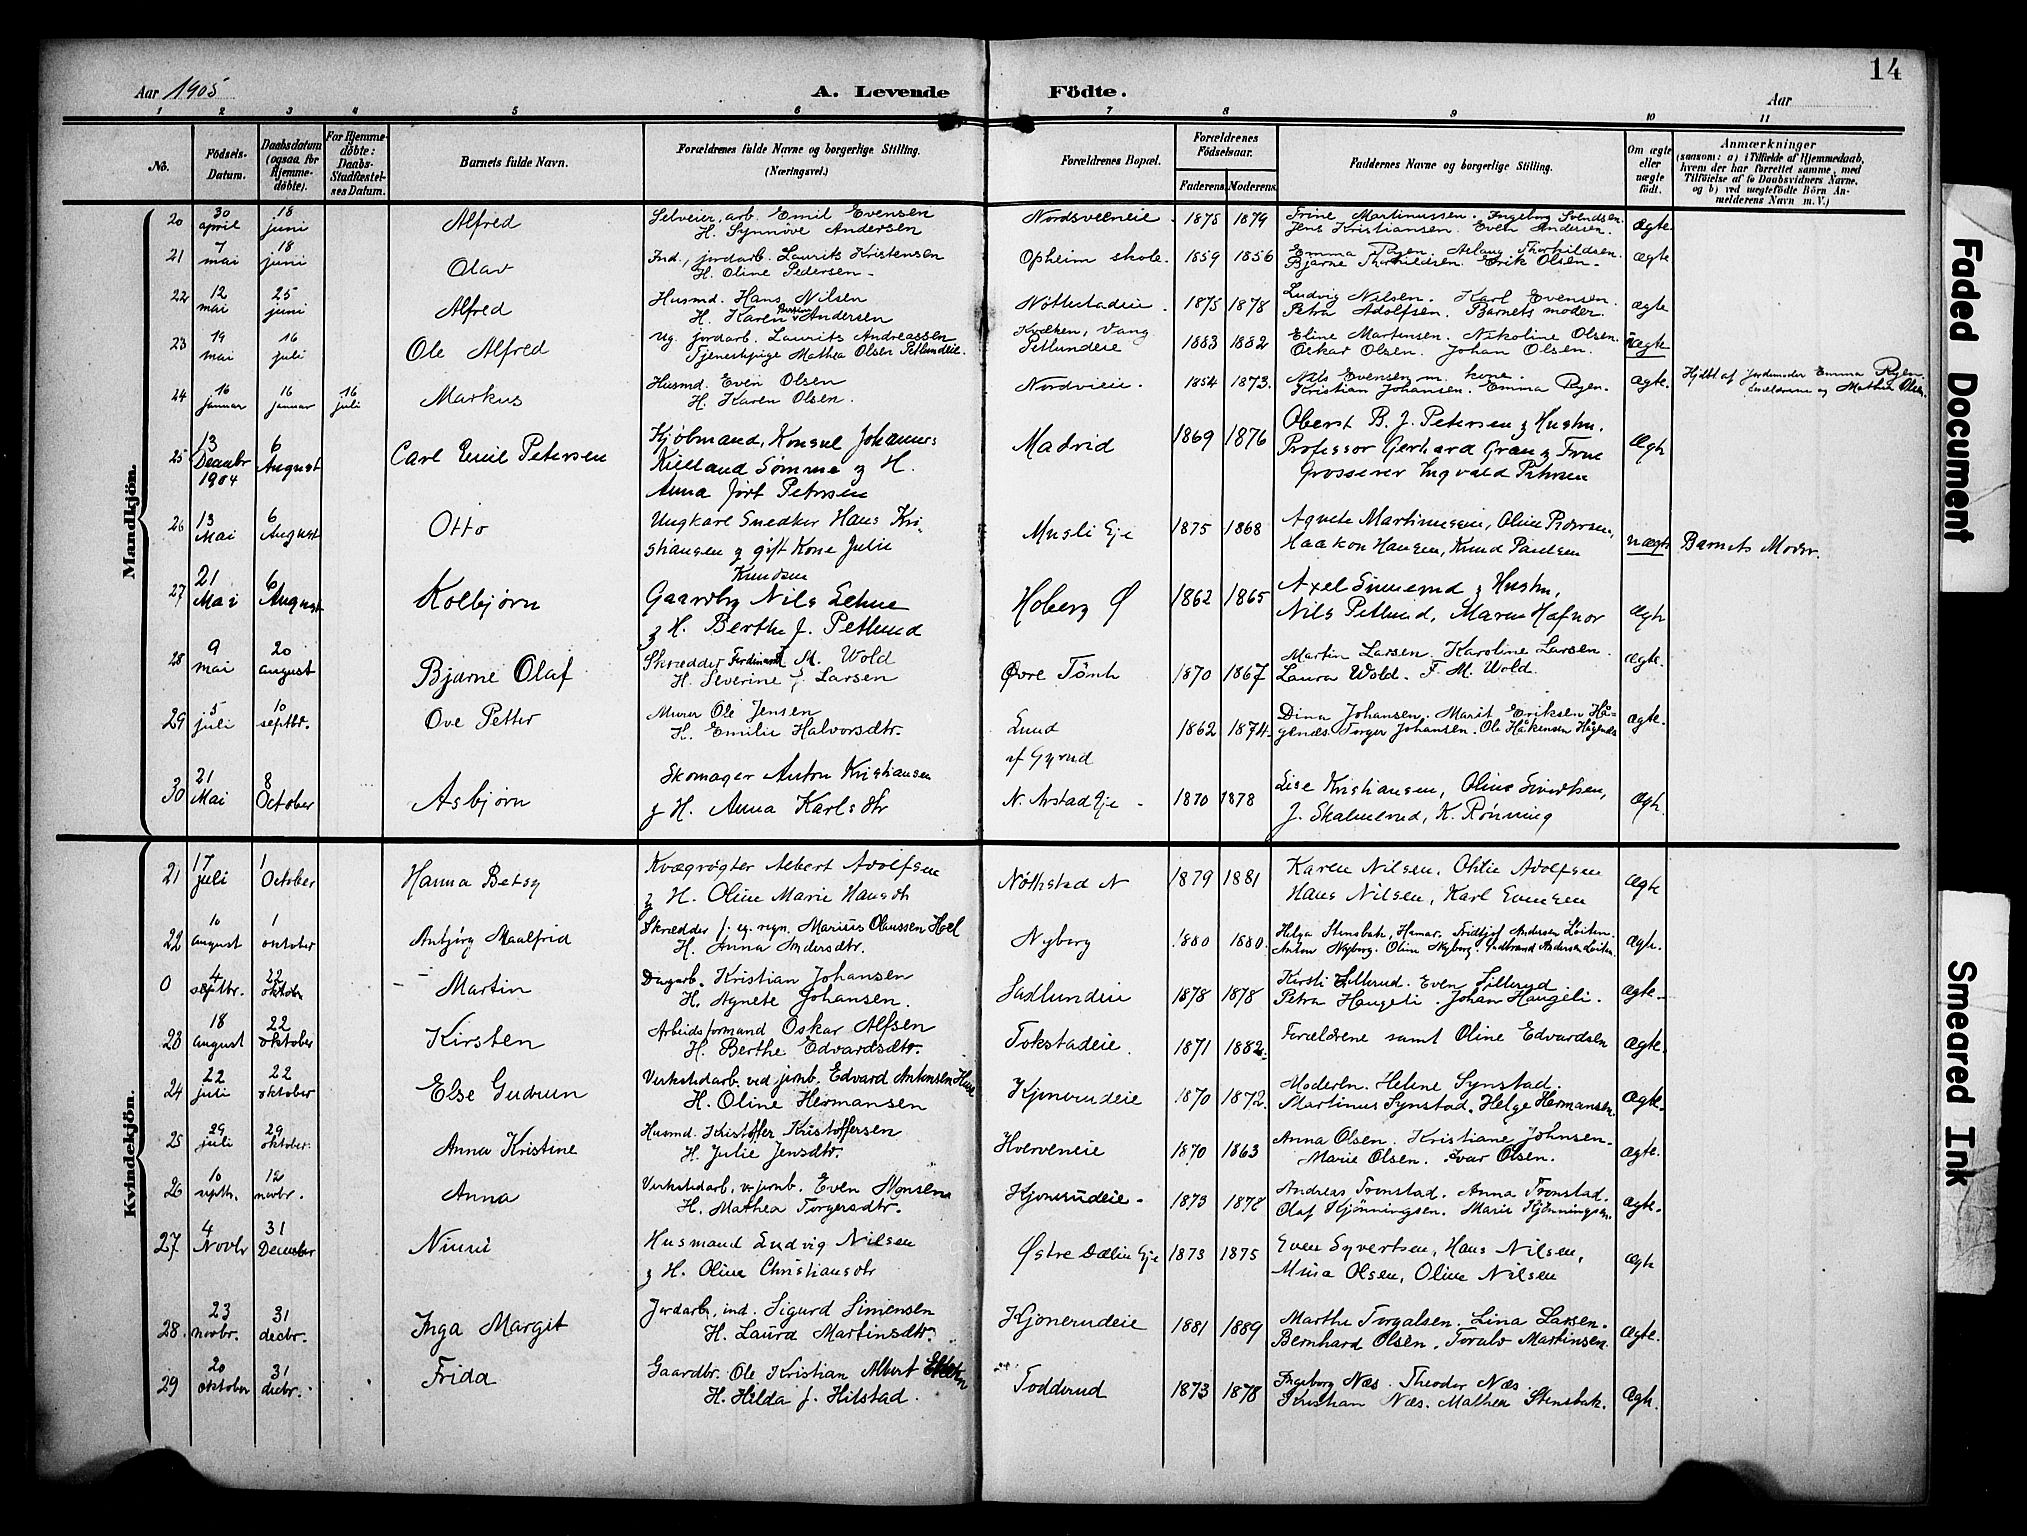 14
Aar 1905
A. Levende Födte.
Aar
1 2 3 4 5 6 7 8 9 10 11
No.
Födsels-Datum.
Daabsdatum (ogsaa for Hjemmedöbte).
For Hjemmedöbte: Daabs-Stadfæstelses Datum.
Barnets fulde Navn.
Forældrenes fulde Navne og borgerlige Stilling. (Næringsvei.)
Forældrenes Bopæl.
Forældrenes Födselsaar.
Faderens Moderens
Faddernes Navne og borgerlige Stilling.
Om ægte eller uægte födt.
Anmærkninger
(saasom: a) i Tilfælde af Hjemmedaab, hvem der har forrettet samme, med Tilföielse af to Daabsvidners Navne, og b) ved uægtefödte Börn Anmelderens Navn m. V.)
Mandkjön.
20 30 april 18 juni Alfred Selveier, arb. Emil Evensen H. Synnøve Andersen Nordsveeneie 1875 1879 Trine Martinussen. Ingeborg Svendsen. Jens Kristiansen. Even Andersen. Ægte
21 7 mai 18 juni Olav Ind., jordarb. Laurits Kristensen H. Oline Pedersen Opheim skole. 1859 1856 Emma Ryen. Aslaug Thorhildsen. Bjarne Thorhildsen. Erik Olsen. ægte
22 12 mai 25 juni Alfred Husmd. Hans Nilsen H. Karen Andersen Nøttestadeie 1875 1878 Ludvig Nilsen. Karl Evensen. Petra Adolfsen. Barnets moder. ægte
23 19 mai 16 juli Ole Alfred Ug. jordarb. Laurits Andreassen Tjenestepige Mathea Olsen Petlundeie. Kvæken, Vang Petlundeie 1883 1882 Eline Martinsen. Nikoline Olsen. Oskar Olsen. Johan Olsen. uægte
24 10 januar 16 januar 16 juli Markus Husmd. Even Olsen H. Karen Olsen. Nordvieie. 1854 1873. Nils Evensen m. kone. Kristian Johansen. Emma Ryen. ægte. Hjdbt af jordemoder Emma Ryen. Forældrene og Mathea Olsen.
25 13 Decembr 1904 6 August Carl Emil Petersen Kjøbmand, Konsul Johannes Kielland Sømme & H. Anna født Petersen Madrid 1869 1876 Oberst B. J. Petersen & Hustru. Professor Gerhard Gran & Frue Grosserer Ingvald Petersen Ægte
26 13 Mai 6 August Otto Ungkarl Snedker Hans Kristiansen & gift Kone Julie Knudsen Musli Eje 1875 1868 Agnete Martinussen, Oline Pedersen, Haakon Hansen, Knud Paulsen uægte Barnets Moder.
27 21 Mai 6 August Kolbjørn Gaardbr Nils Lehne & H. Berthe J. Petlund Hoberg Ø 1862 1865 Axel Sinnerud & Hustru, Nils Petlund, Maren Hafnor Ægte
28 9 mai 20 august Bjarne Olaf Skrædder Ferdinand M. Wold H. Severine f. Larsen Øvre Tømte 1870 1867 Martin Larsen. Karoline Larsen. Laura Wold. F. M. Wold. ægte.
29 5 juli 10 septbr. Ove Petter Murer Ole Jensen H. Emilie Halvorsdtr. Lund af Gyrud 1862 1874. Dina Johansen. Marit Eriksen Hågenæs. Torger Johansen. Ole Håkensen Hågenæs Ægte.
30 21 Mai 8 October Asbjørn Skomager Anton Kristiansen & H. Anna Karlsdtr N. Arstad Eje 1870 1878 Lise Kristiansen, Oline Sivertsen, J. Skalmerud, K. Rønning Ægte
Kvindekjön.
21 17 juli 1 October Hanna Betsy Kvægrøgter Albert Adolfsen & H. Oline Marie Hansdtr Nøttestad N 1879 1881 Karen Nilsen, Othilie Adolfsen Hans Nilsen, Karl Evensen Ægte
22 10 august 1 oktober Anbjørg Maalfrid Skrædder f. eg. regn. Marius Olaussen Hoel H. Anna Andersdtr. Nyborg 1880 1880. Helga Stensbak, Hamar. Fridtjof Andersen Løiten. Anton Nyborg. Oline Nyborg. Gudbrand Andersen Løiten. Ægte.
0 4 septbr. 22 oktober Martin Dagarb. Kristian Johansen H. Agnete Johansen. Sadlundeie 1878 1878 Kersti Sillerud. Even Sillerud Petra Haugeli. Johan Haugeli. Ægte
23 18 august 22 oktober Kirsten Arbeidsformand Oskar Alfsen H. Berthe Edvardsdtr. Tokstadeie. 1871 1882. Forældrene samt Oline Edvardsen Ægte.
24 22 juli 22 oktober Else Gudrun Verkstedarb. ved jernb. Edvard Antonsen H. Oline Hermansen Kjonerudeie 1870 1872. Moderen. Helene Synstad. Martinus Synstad. Helge Hermansen. Ægte.
25 29 juli 29 oktober. Anna Kristine Husmd. Kristoffer Kristoffersen H. Julie Jensdtr. Hverveneie 1870 1863 Anna Olsen. Kristiane Johnsen. Marie Olsen. Ivar Olsen. Ægte.
26 10 septbr. 12 novbr. Anna Verkstedarb. v. jernb. Even Monsen H. Mathea Torgersdtr. Kjonerudeie 1873 1878 Andreas Tronstad. Anna Tronstad. Olaf Kjønningsen. Marie Kjønningsen. Ægte.
27 4 Novbr 31 December Ninni Husmand Ludvig Nilsen & H. Oline Christiansdtr Østre Dælin Eje 1873 1875 Even Syvertsen, Hans Nilsen, Mina Olsen, Oline Nilsen Ægte
28. 23 novbr. 31 decbr. Inga Margit Jordarb., ind. Sigurd Simensen H. Laura Martinsdtr. Kjonerudeie 1881 1889 Marthe Torgalsen. Lina Larsen. Bernhard Olsen. Torulv Martinsen. Ægte.
29 20 oktober 31 decbr. Frida Gaardbr. Ole Kristian Albert H. Hilda f. Hilstad. Todderud 1873 1878 Ingeborg Næs. Theodor Næs. Kristian Næs. Mathea Stensbak. Ægte.
Faded Document
Smeared Ink